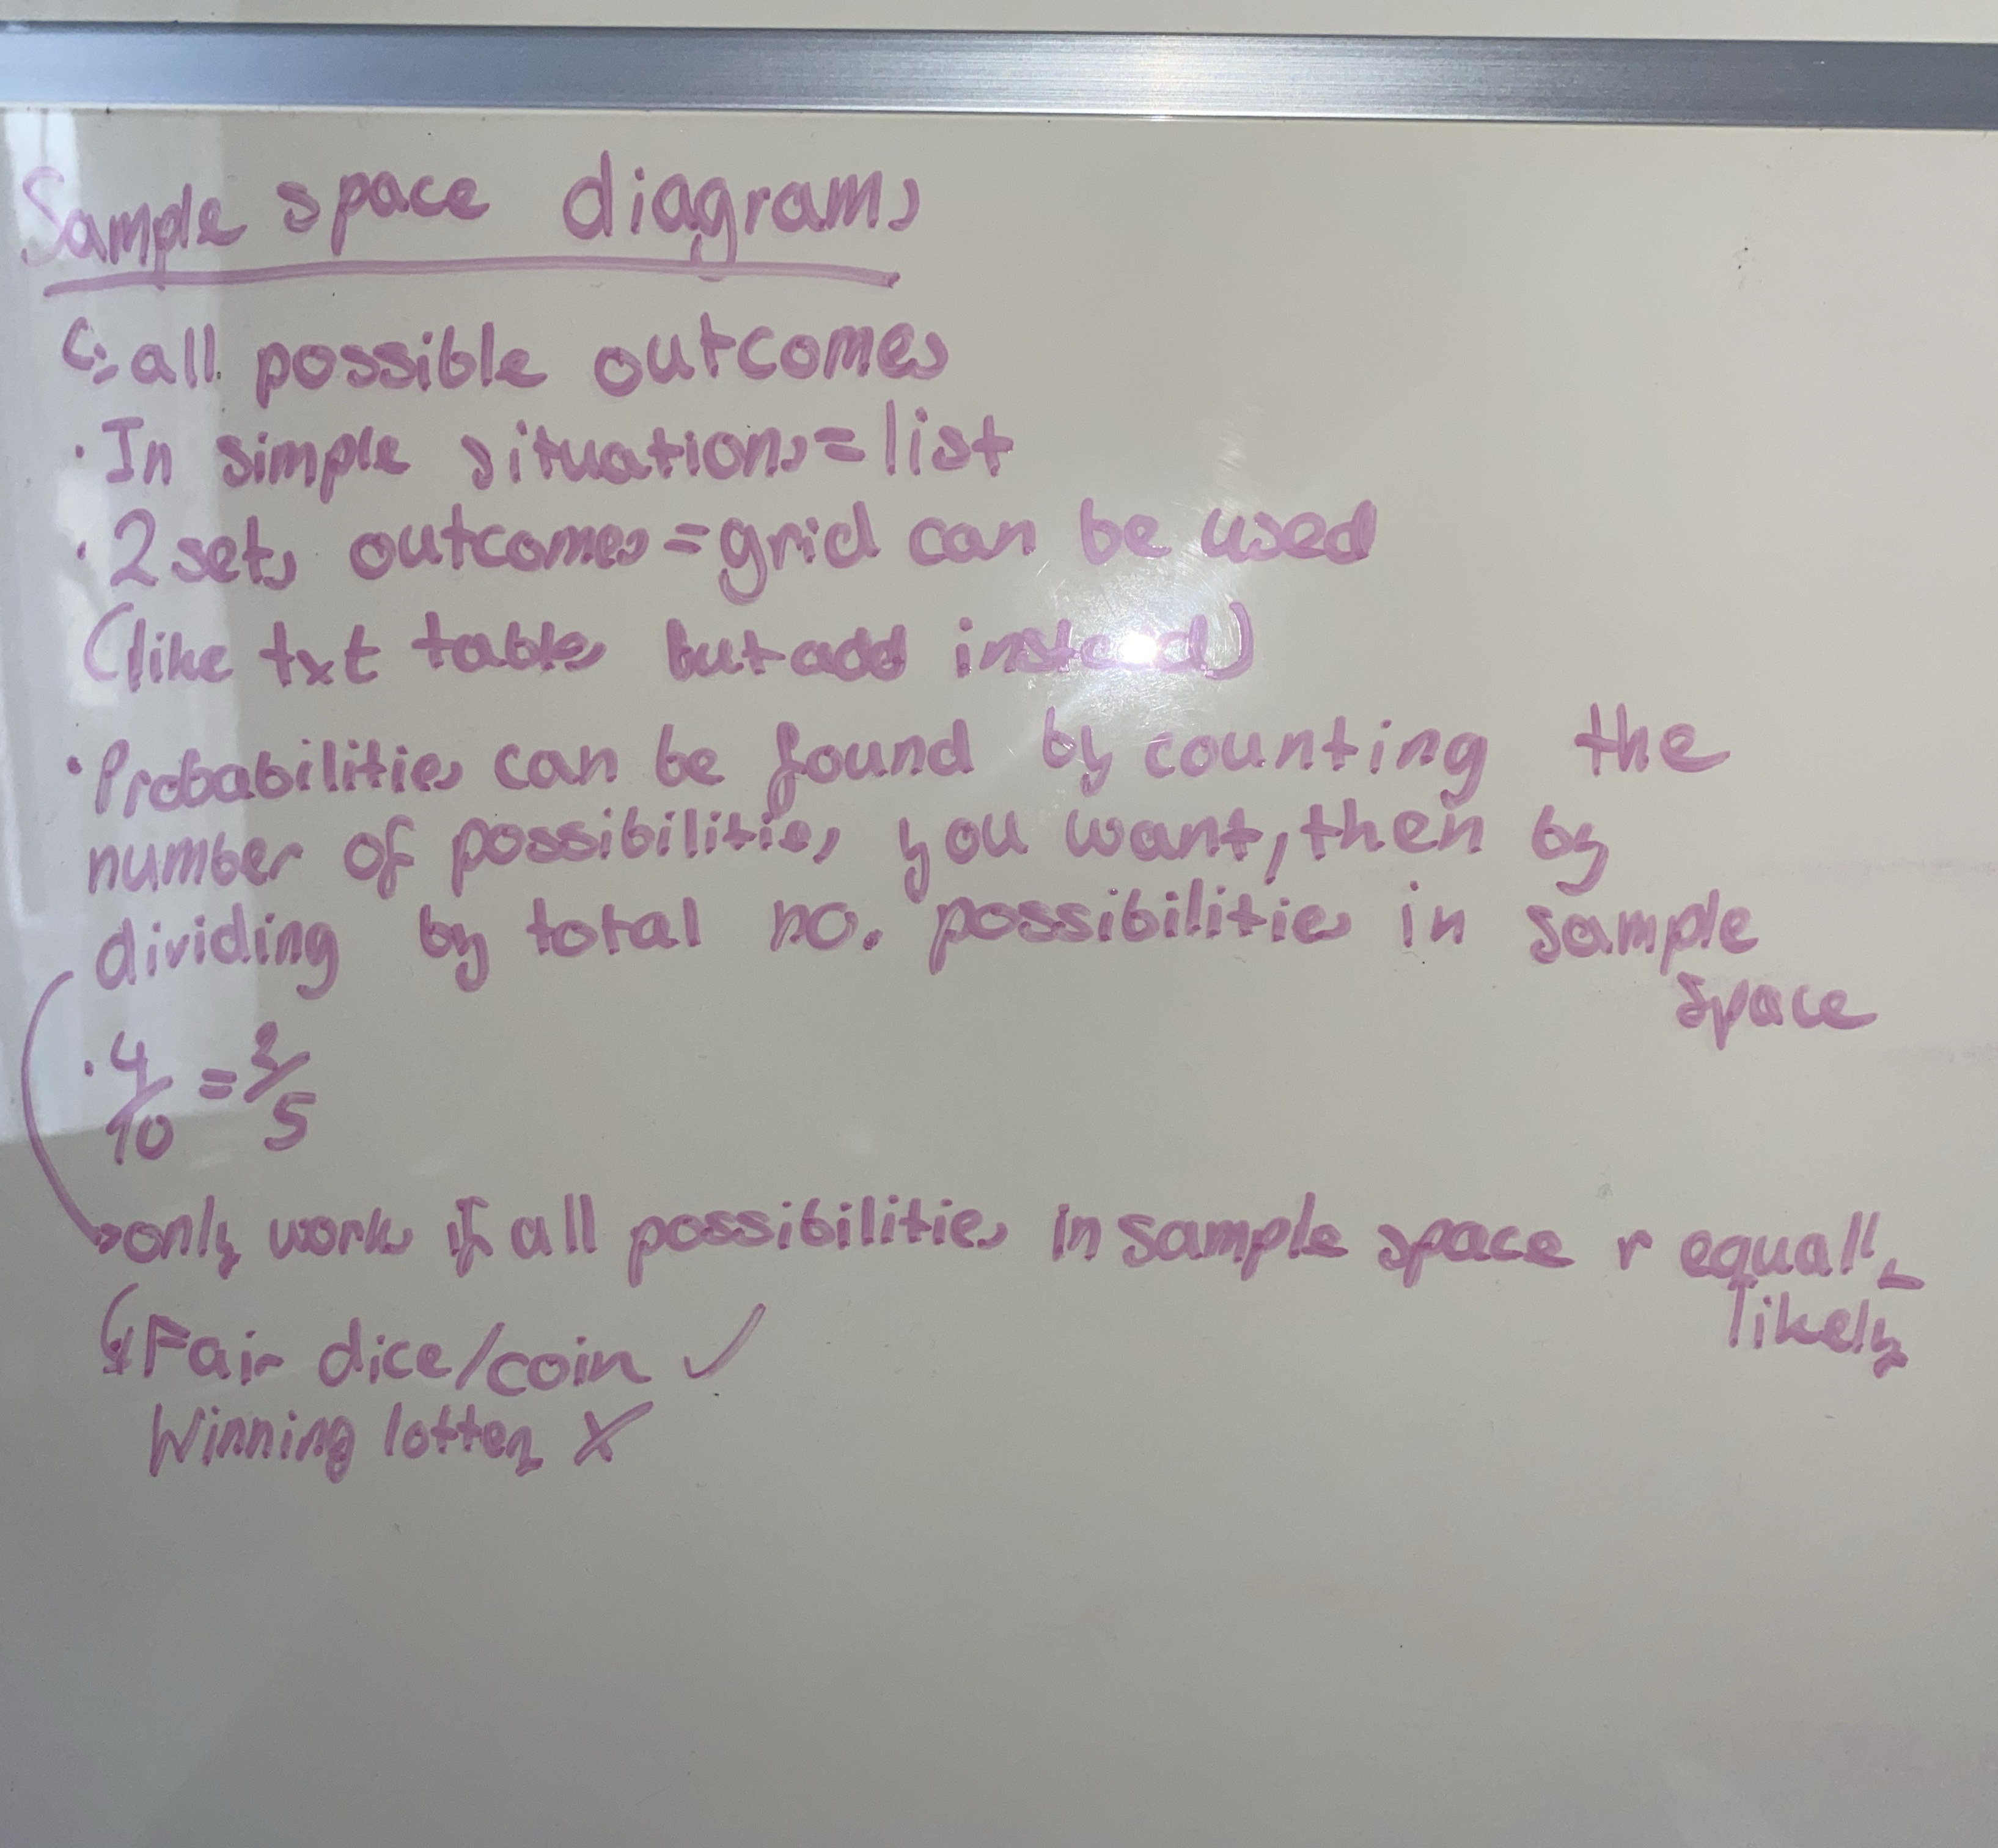 Sample space diagrams
↳ all possible outcomes
· In simple situations = list
· 2 sets outcomes = grid can be used
(like txt tables but add instead)
· Probabilities can be found by counting the
number of possibilities you want, then by
dividing by total no. possibilities in sample
space
· 4/10 = 2/5
→ only works if all possibilities in sample space r equall
likely
↳ Fair dice/coin ✓
Winning lottery X